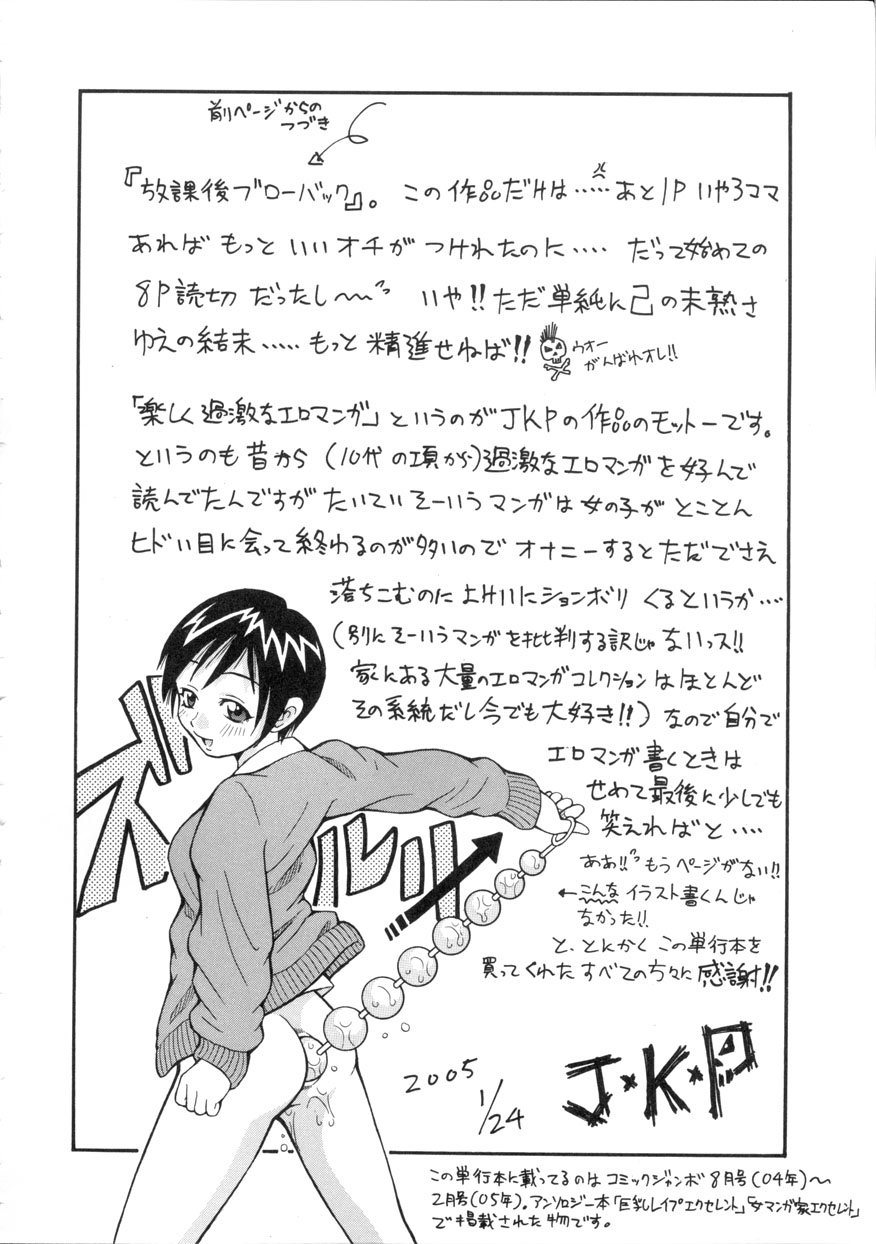 前ページからの
つづき
『放課後ブローバック』。この作品だけは……あと1P いや3コママ
あればもっといいオチがつけれたのに…‥ だって始めての
8P読切だったし〜〜 いや!!ただ単純に己の未熟さ
ゆえの結末……もっと精進せねば!!
ウオー
がんばれオレ!!
「楽しく過激なエロマンガ」というのがJKPの作品のモットーです。
というのも昔から(10代の項から)過激なエロマンガを好んで
読んでたんですがたいていそーいうマンガは女の子がとことん
ヒドい目に会って終わるのが多いのでオナニーするとただでさえ
落ちこむのによけいにションボリくるというか…‥
(別にそーいうマンガを批判する訳じゃないっス!!
家にある大量のエロマンガコレクションはほとんど
その系統だし今でも大好き!!)なので自分で
エロマンガ書くときは
せめて最後に少しでも
笑えればと…‥
ああ!!もうページがない!!
←こんなイラスト書くんじゃ
なかった!!
と、とにかくこの単行本を
買ってくれたすべての方々に感謝!!
ズルルリ
2005
1/24
J★K★P
この単行本に載ってるのはコミックジャンボ8月号(04年)〜
2月号(05年)。アンソロジー本「巨乳レイプエクセレント」「女マンガ家エクセレント」
で掲載された物です。